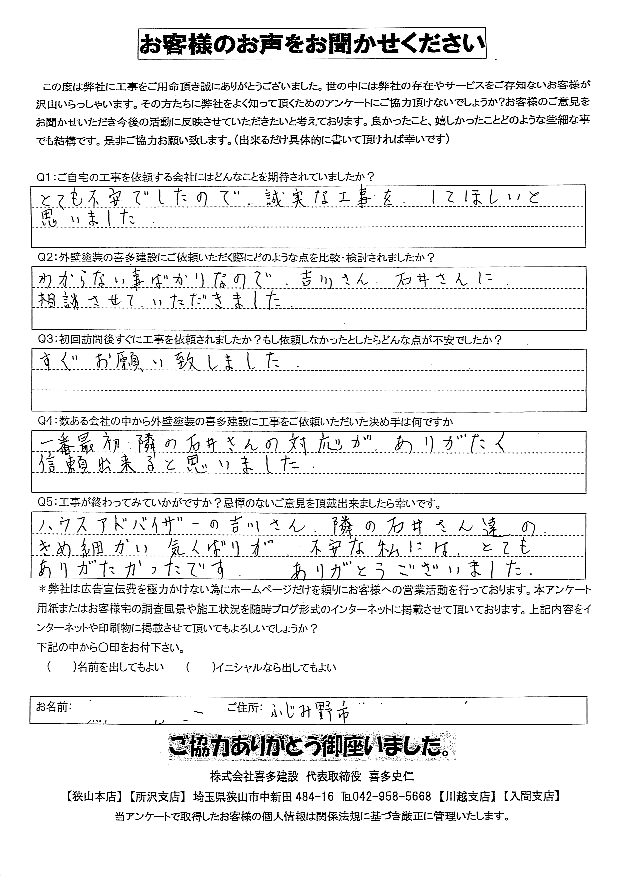 お客様のお声をお聞かせください
この度は弊社に工事をご用命頂き誠にありがとうございました。世の中には弊社の存在やサービスをご存知ないお客様が
沢山いらっしゃいます。その方たちに弊社をよく知って頂くためのアンケートにご協力頂けないでしょうか?お客様のご意見を
お聞かせいただき今後の活動に反映させていただきたいと考えております。良かったこと、嬉しかったことどのような些細な事
でも結構です。是非ご協力お願い致します。(出来るだけ具体的に書いて頂ければ幸いです)
Q1:ご自宅の工事を依頼する会社にはどんなことを期待されていましたか?
とても不安でしたので、誠実な工事を、してほしいと
思いました.
Q2:外壁塗装の喜多建設にご依頼いただく際にどのような点を比較・検討されましたか?
わからない事ばかりなので、吉川さん、石井さんに
相談させていただきました.
Q3:初回訪問後すぐに工事を依頼されましたか?もし依頼しなかったとしたらどんな点が不安でしたか?
すぐお願い致しました.
Q4:数ある会社の中から外壁塗装の喜多建設に工事をご依頼いただいた決め手は何ですか
一番最初、隣の石井さんの対応が、ありがたく
信頼出来ると思いました.
Q5:工事が終わってみていかがですか?忌憚のないご意見を頂戴出来ましたら幸いです。
ハウスアドバイザーの吉川さん、隣の石井さん達の、
きめ細かい気くばりが、不安な私には、とても
ありがたかったです. ありがとうございました.
*弊社は広告宣伝費を極力かけない為にホームページだけを頼りにお客様への営業活動を行っております。本アンケート
用紙またはお客様宅の調査風景や施工状況を随時ブログ形式のインターネットに掲載させて頂いております。上記内容をイ
ンターネットや印刷物に掲載させて頂いてもよろしいでしょうか?
下記の中から〇印をお付下さい。
( )名前を出してもよい ( )イニシャルなら出してもよい
お名前: ご住所: ふじみ野市
ご協力ありがとう御座いました。
株式会社喜多建設 代表取締役 喜多史仁
【狭山本店】【所沢支店】 埼玉県狭山市中新田484-16 ℡042-958-5668 【川越支店】【入間支店】
当アンケートで取得したお客様の個人情報は関係法規に基づき厳正に管理いたします。